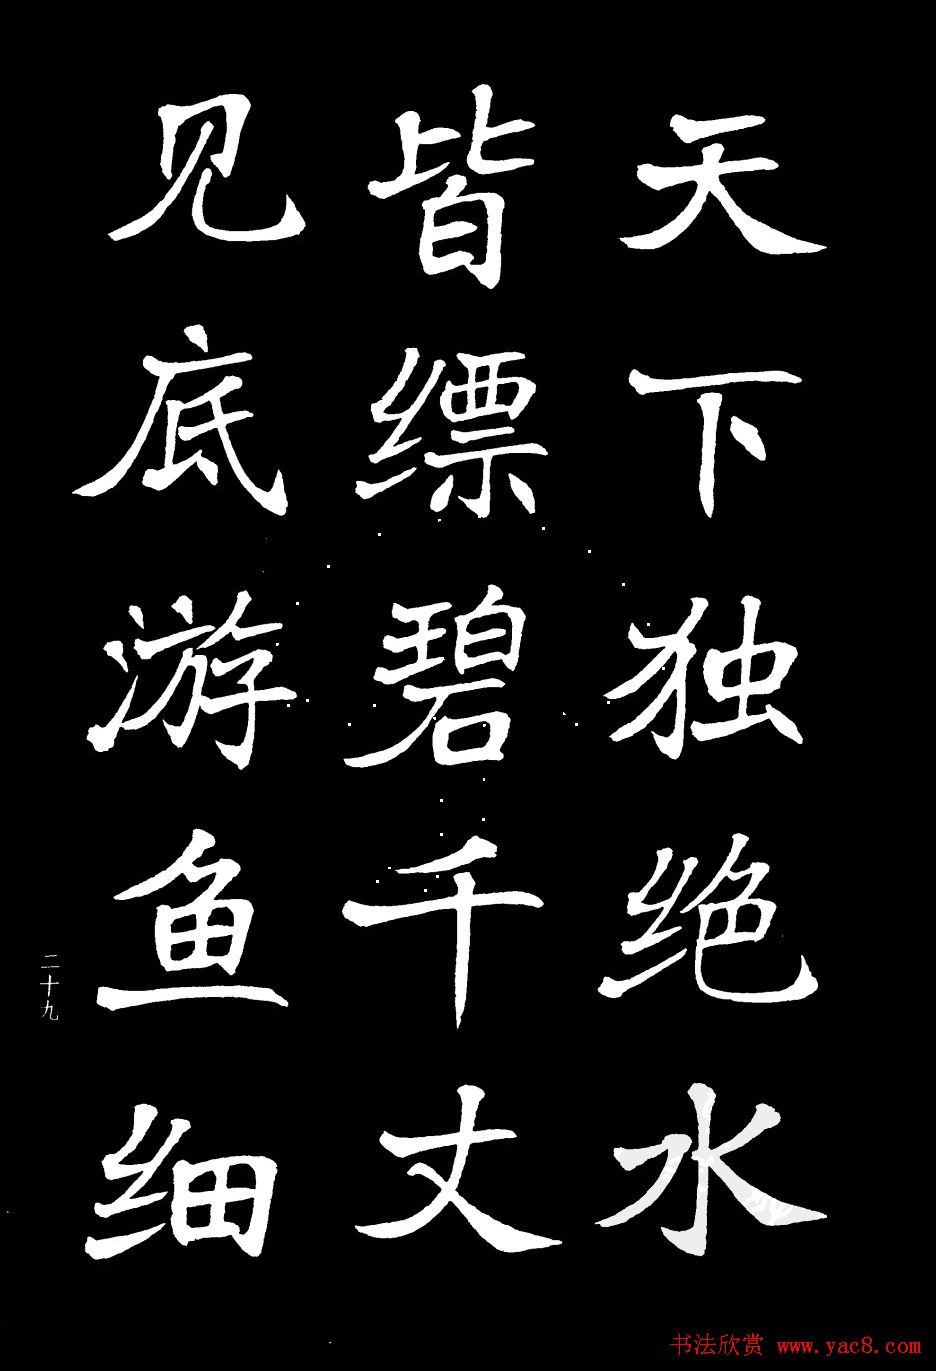 天下独绝水
皆缥碧千丈
见底游鱼细
二十九
书法欣赏 www.yac8.com